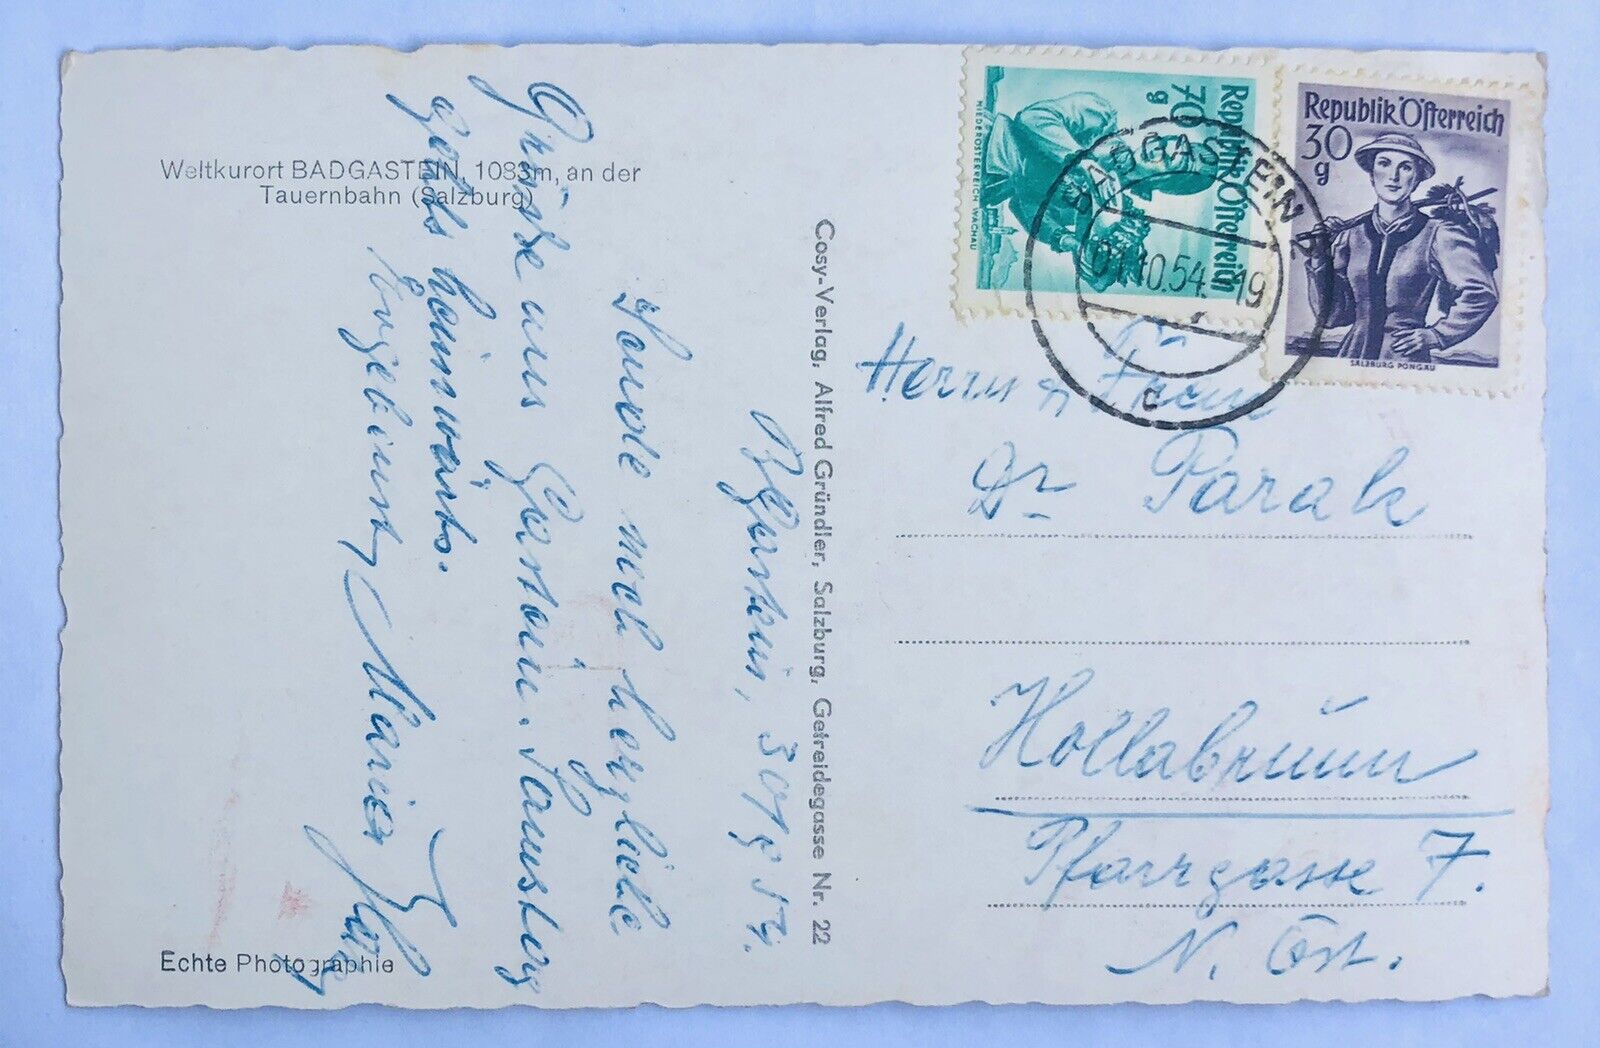 Weltkurort BADGASTEIN, 1083m, an der
Tauernbahn (Salzburg)
B. Gastein, 30/9 54.
Sende noch herzliche
Grüße aus Gastein. Samstag
geht's heimwärts.
Ergebenst Maria
Echte Photographie
Cosy-Verlag, Alfred Gründler, Salzburg, Getreidegasse Nr. 22
Republik Österreich
70
g
NIEDERÖSTERREICH WACHAU
Republik Österreich
30
g
SALZBURG PONGAU
BADGASTEIN 2
01.10.54. 19
c
Herrn u Frau
Dr Parak
Hollabrunn
Pfarrgasse 7.
N. Öst.